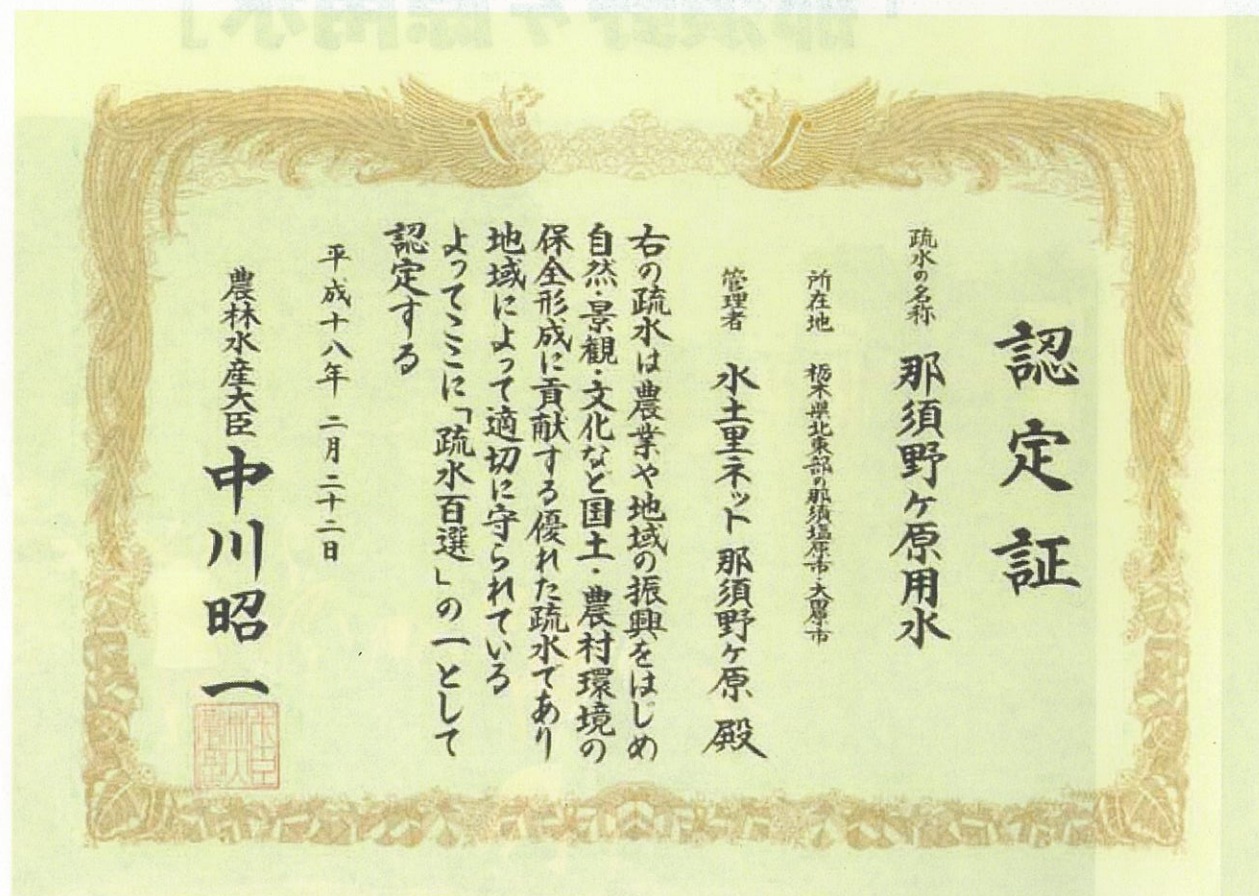 認定証
疏水の名称 那須野ヶ原用水
所在地 栃木県北東部の那須塩原市・大田原市
管理者 水土里ネット那須野ヶ原 殿
右の疏水は農業や地域の振興をはじめ
自然・景観・文化など国土・農村環境の
保全形成に貢献する優れた疏水であり
地域によって適切に守られている
よってここに「疏水百選」の一として
認定する
平成十八年 二月二十二日
農林水産大臣 中川昭一